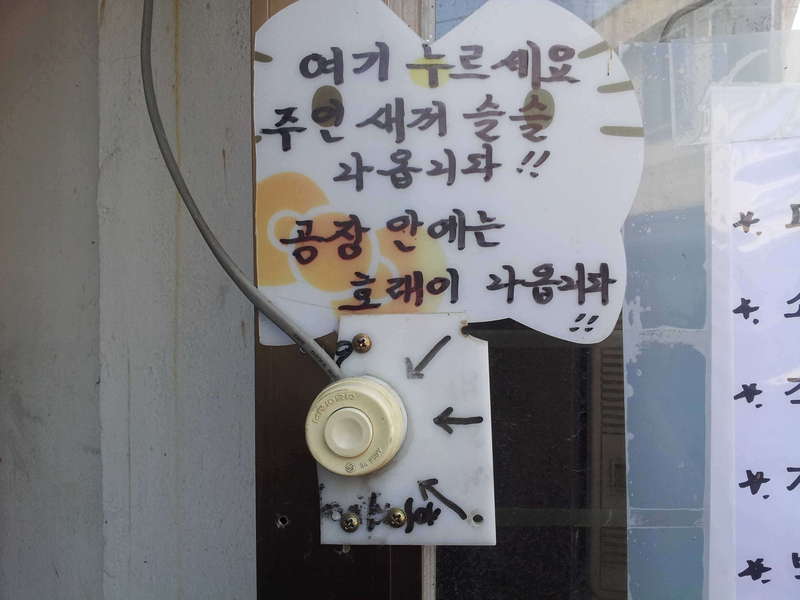 여기 누르세요
주인 새끼 슬슬
나옵니다 !!
공장 안에는
호래이 나옵니다
!!